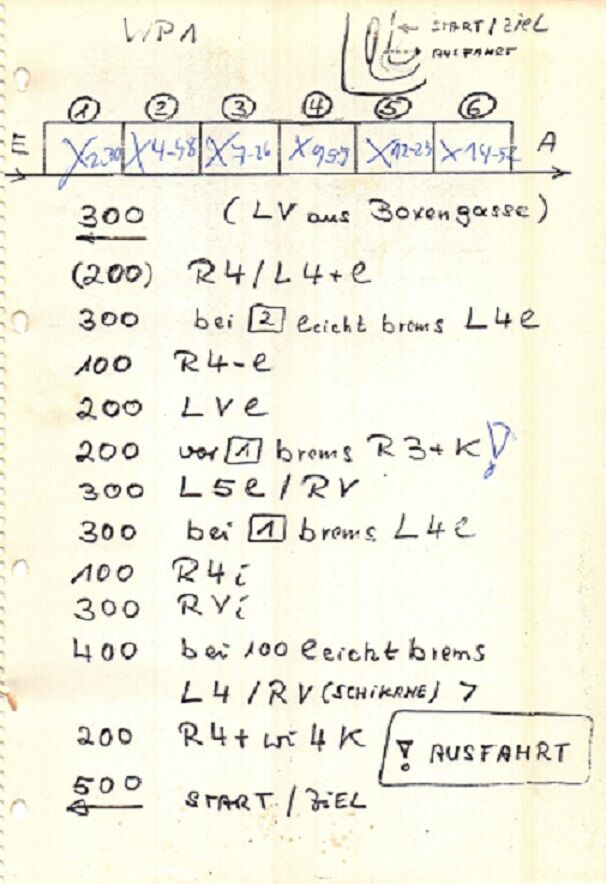 WP1
START / ZIEL
AUSFAHRT
1 2 3 4 5 6
E X2-30 X4-58 X7-26 X9-59 X12-23 X14-52 A
300 (LV aus Boxengasse)
(200) R4/L4+e
300 bei 2 leicht brems L4e
100 R4-e
200 LVe
200 vor 1 brems R3+K!
300 L5e/RV
300 bei 1 brems L4e
100 R4i
300 RVi
400 bei 100 leicht brems
L4/RV (SCHIKANE) >
200 R4+ wi 4K
! AUSFAHRT
500 START / ZIEL